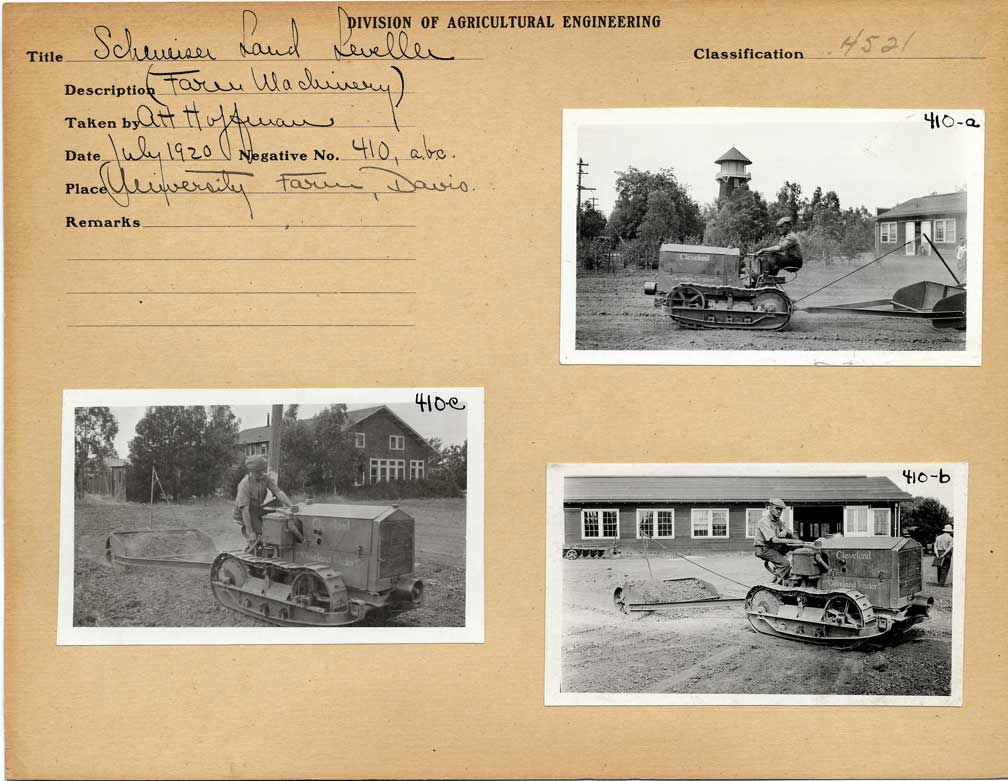 DIVISION OF AGRICULTURAL ENGINEERING
Title Schmeiser Land Leveller
Classification 4521
Description (Farm Machinery)
Taken by AH Hoffman
Date July 1920 Negative No. 410, abc.
Place University Farm, Davis.
Remarks
410-a
Cleveland
410-c
410-b
Cleveland
Cleveland Tractor